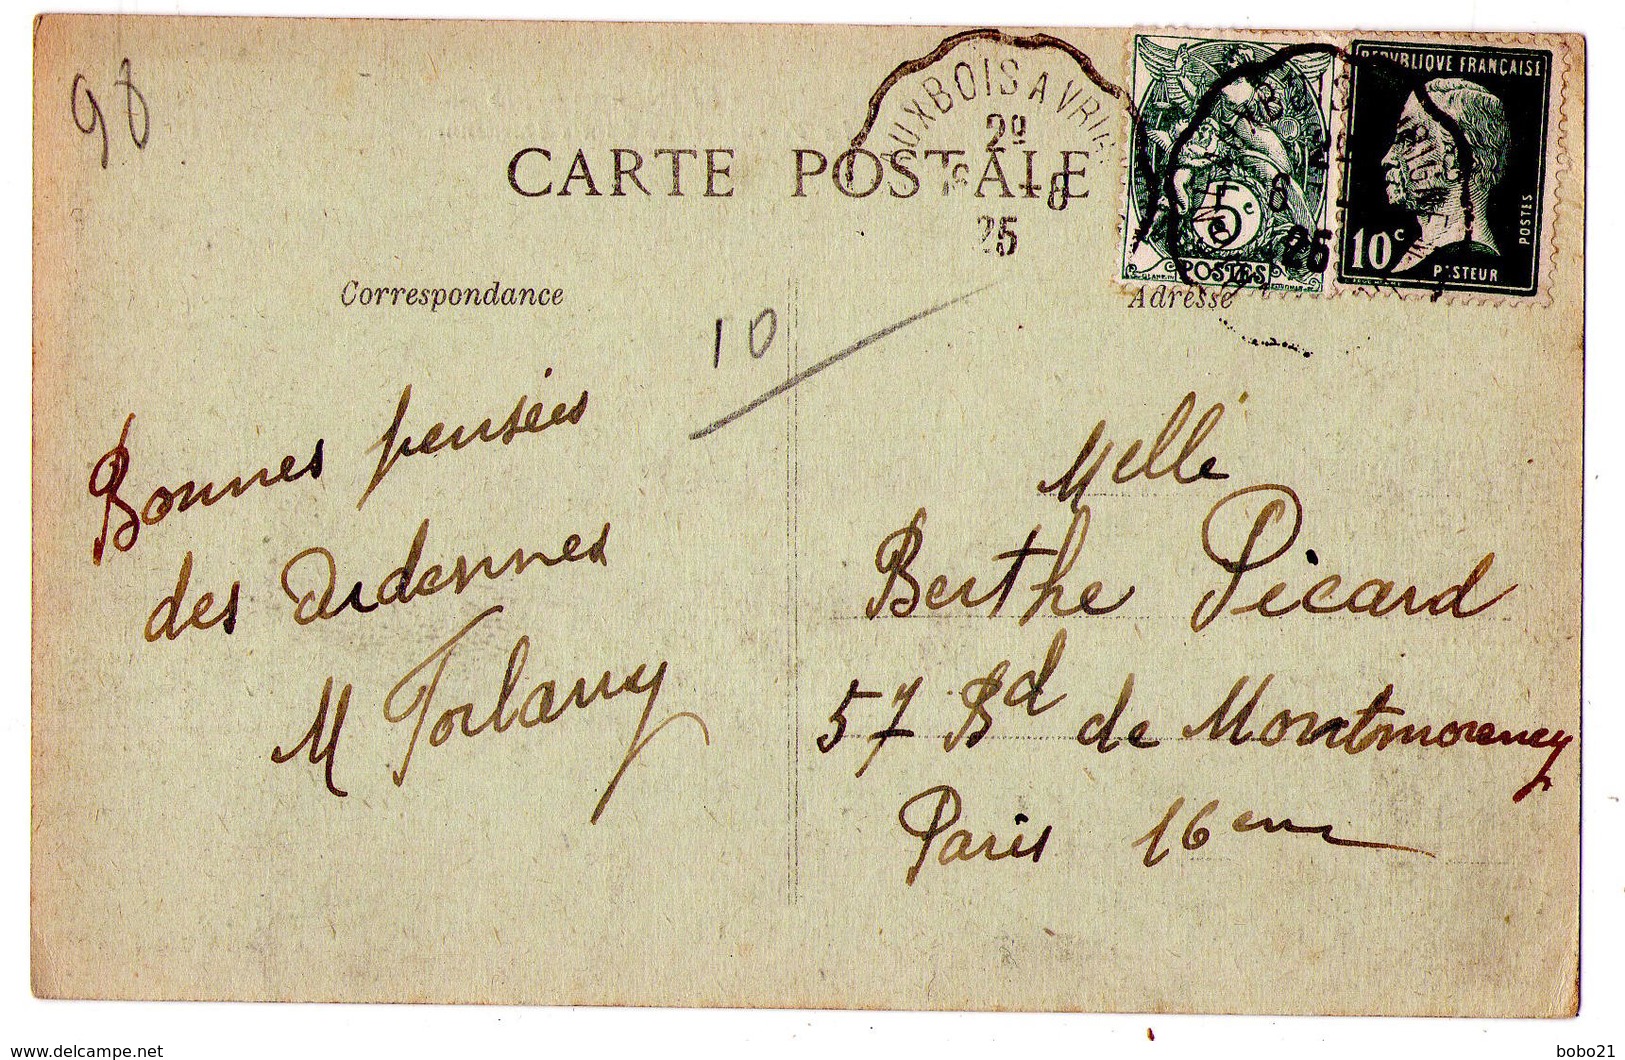 98
CARTE POSTALE
UXBOIS A VRI
2º
25
5c
POSTES
6
25
REPUBLIQUE FRANÇAISE
10c
PASTEUR
POSTES
Correspondance
Adresse
10
Bonnes pensées
des Ardennes
M
Melle
Berthe Picard
57 Bd de Montmorency
Paris 16eme
delcampe.net
bobo21